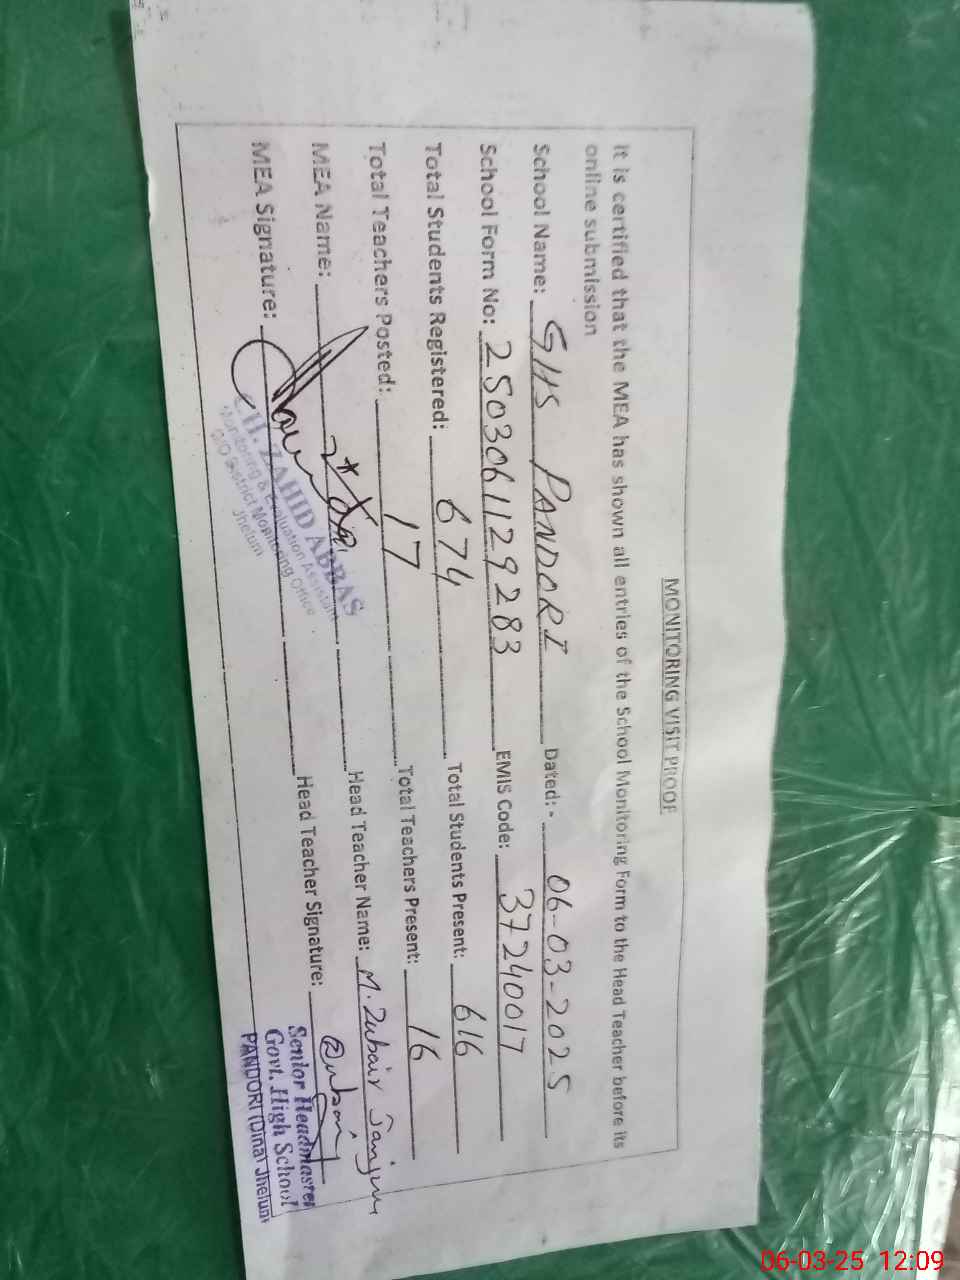 MONITORING VISIT PROOF
It is certified that the MEA has shown all entries of the School Monitoring Form to the Head Teacher before its
online submission
School Name: GHS PANDORI Dated: - 06-03-2025
School Form No: 2503061129283 EMIS Code: 37240017
Total Students Registered: 674 Total Students Present: 616
Total Teachers Posted: 17 Total Teachers Present: 16
MEA Name: Head Teacher Name: M. Zubair Janjua
MEA Signature: Head Teacher Signature: Zubair
CH. ZAHID ABBAS
Monitoring & Evaluation Assistant
O/O District Monitoring Office
Jhelum
Senior Headmaster
Govt. High School
PANDORI (Dina) Jhelum
06-03-25 12:09